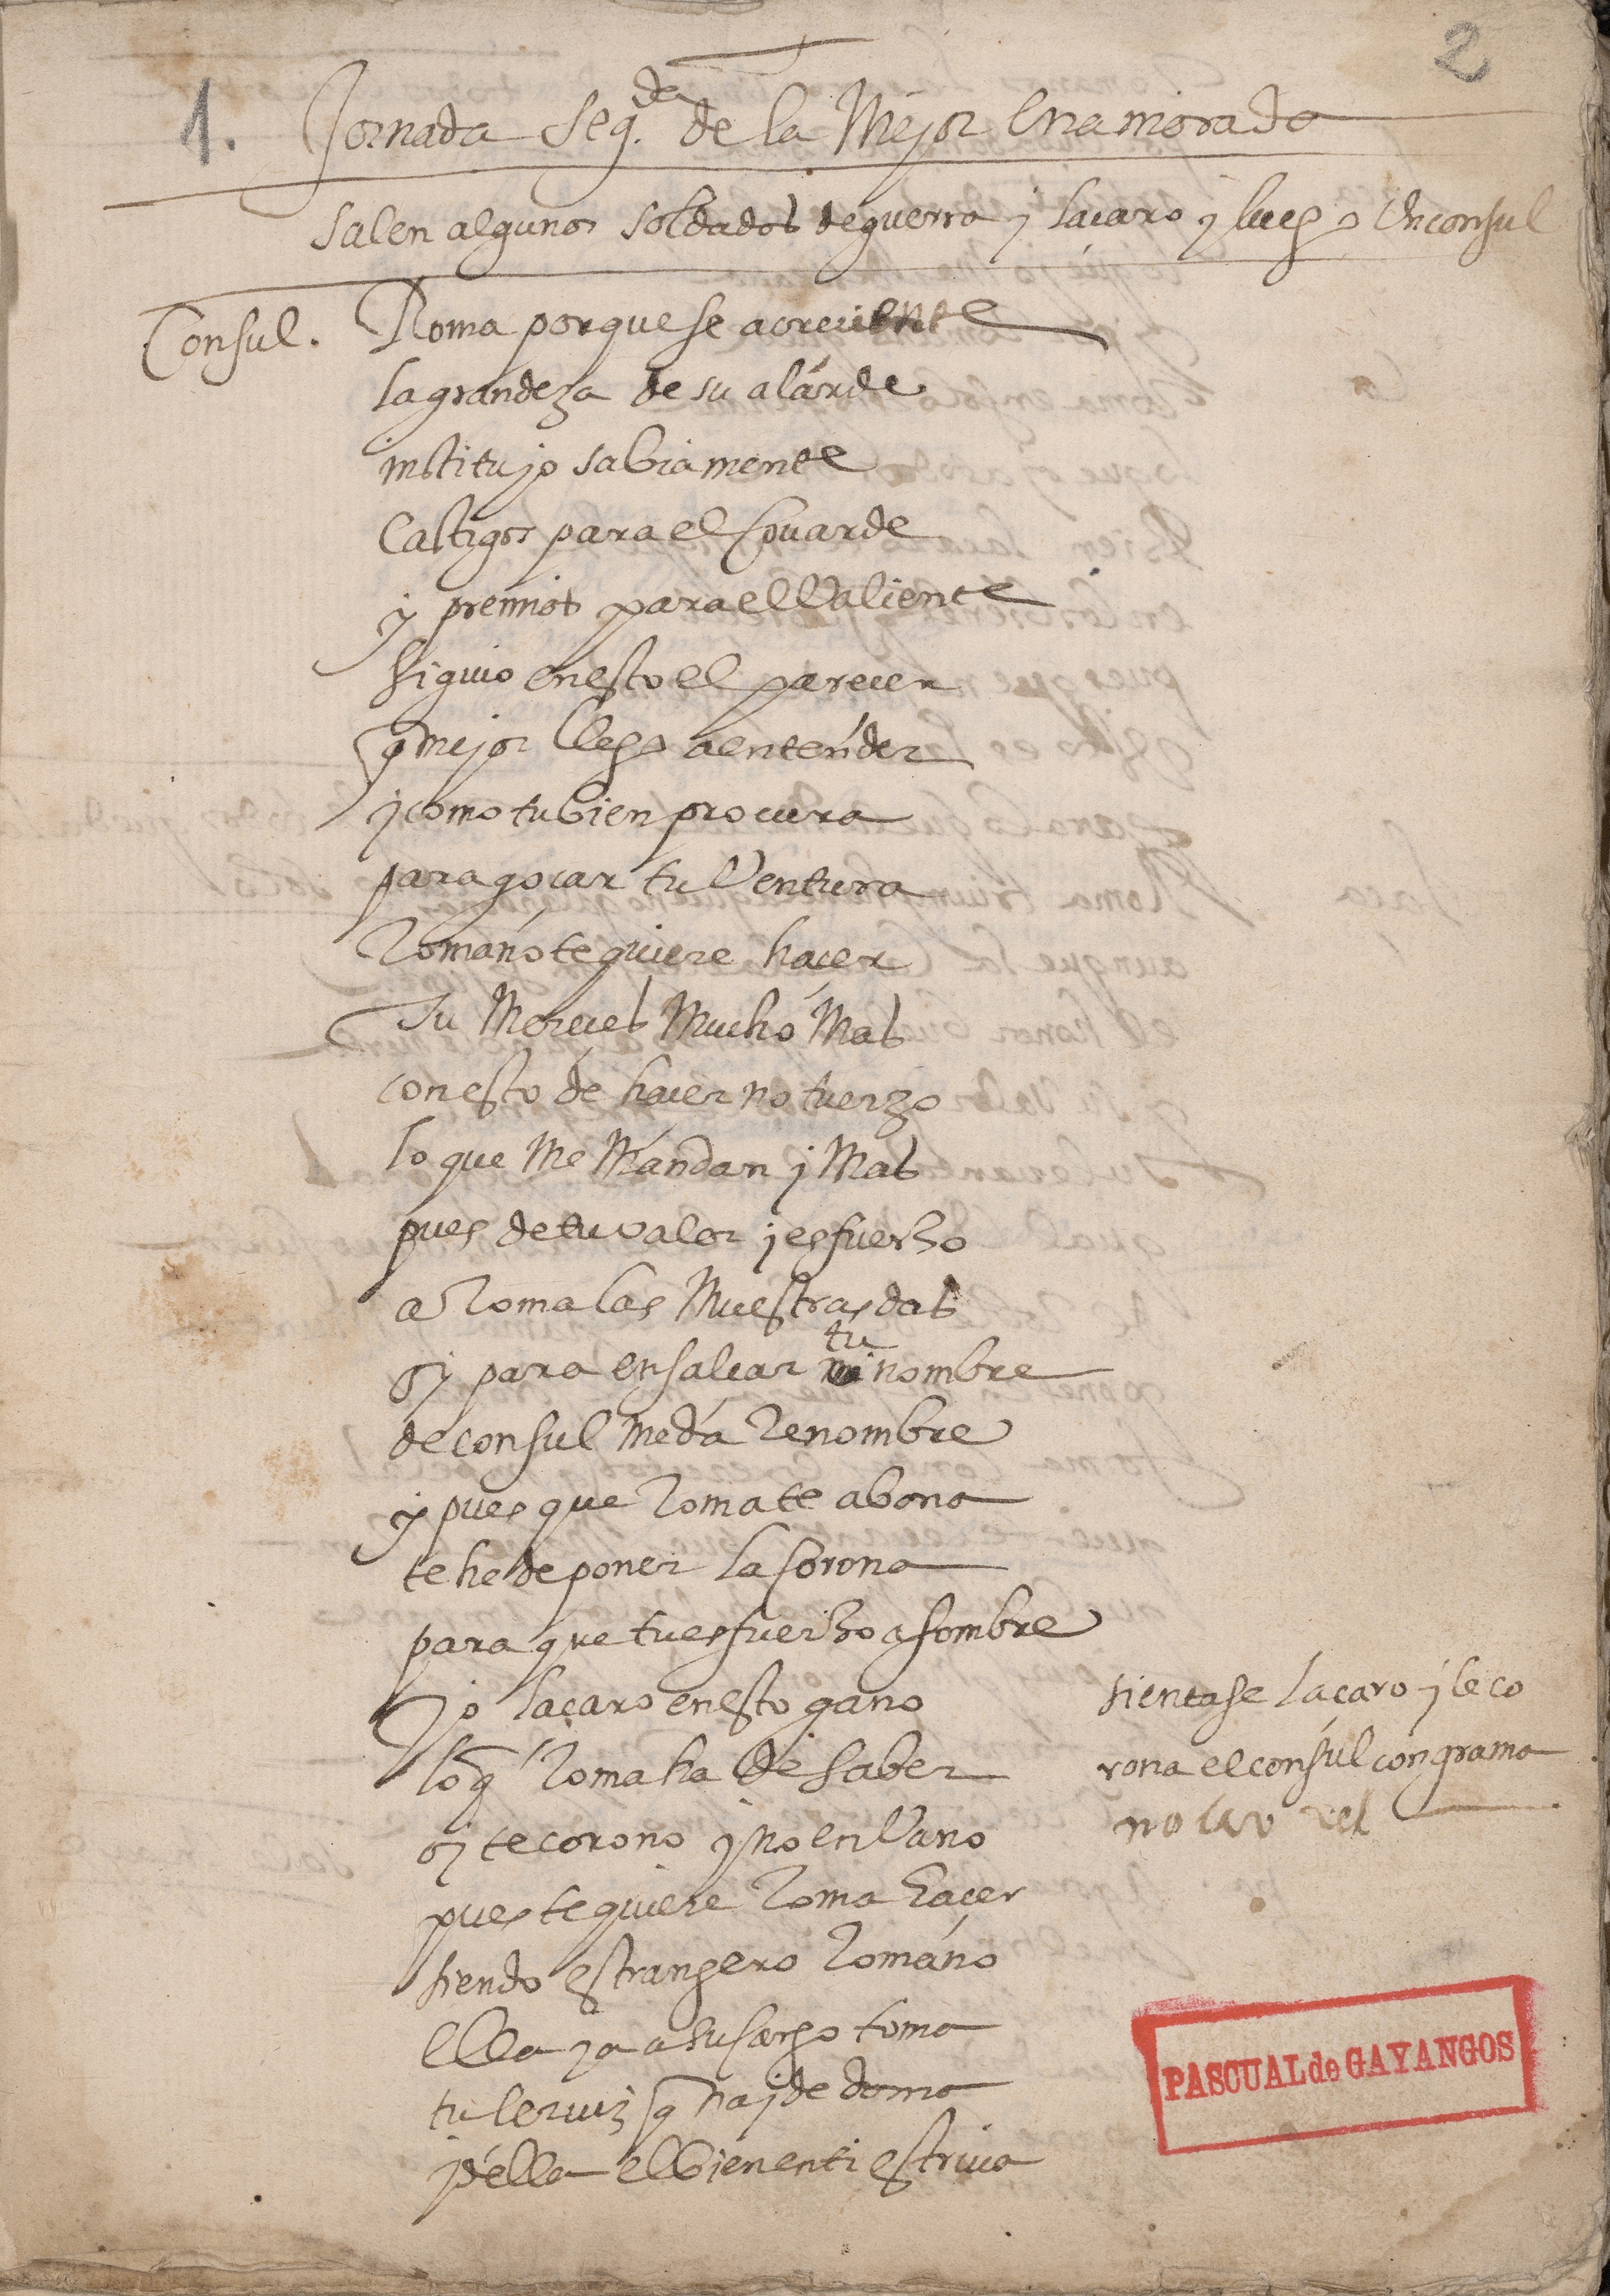 2
1. Jornada Seg.da de la Mejor Enamorada
salen algunos soldados de guerra j Lacaro j luego Un consul
Consul. Roma porque se acreciente
la grandeza de su alarde
institujo sabia mente
Castigos para el Couarde
y premios para el Valiente
siguio en esto el parecer
q mejor llego a entender
j como tu bien procura
para gocar tu Ventura
Romano te quiere hacer
Tu Mereces Mucho Mas
con esto de hacer no tuerzo
lo que Me Mandan j Mas
pues de tu valor j esfuerzo
a Roma las Muestras das
si para ensalcar tu nombre
de consul me da Renombre
y pues que Roma te abona
te he de poner la Corona
para que tu esfuerzo asombre
Jo lacaro en esto gano
lo q Roma ha de saber
si te corono j no en Vano
pues te quiere Roma hacer
siendo estrangero Romano
ella ja a su cargo toma
tu ceruiz q naide doma
j della el bien en ti estriua
sientase Lacaro j le co
rona el consul con grama
no lau rel
PASCUAL de GAYANGOS